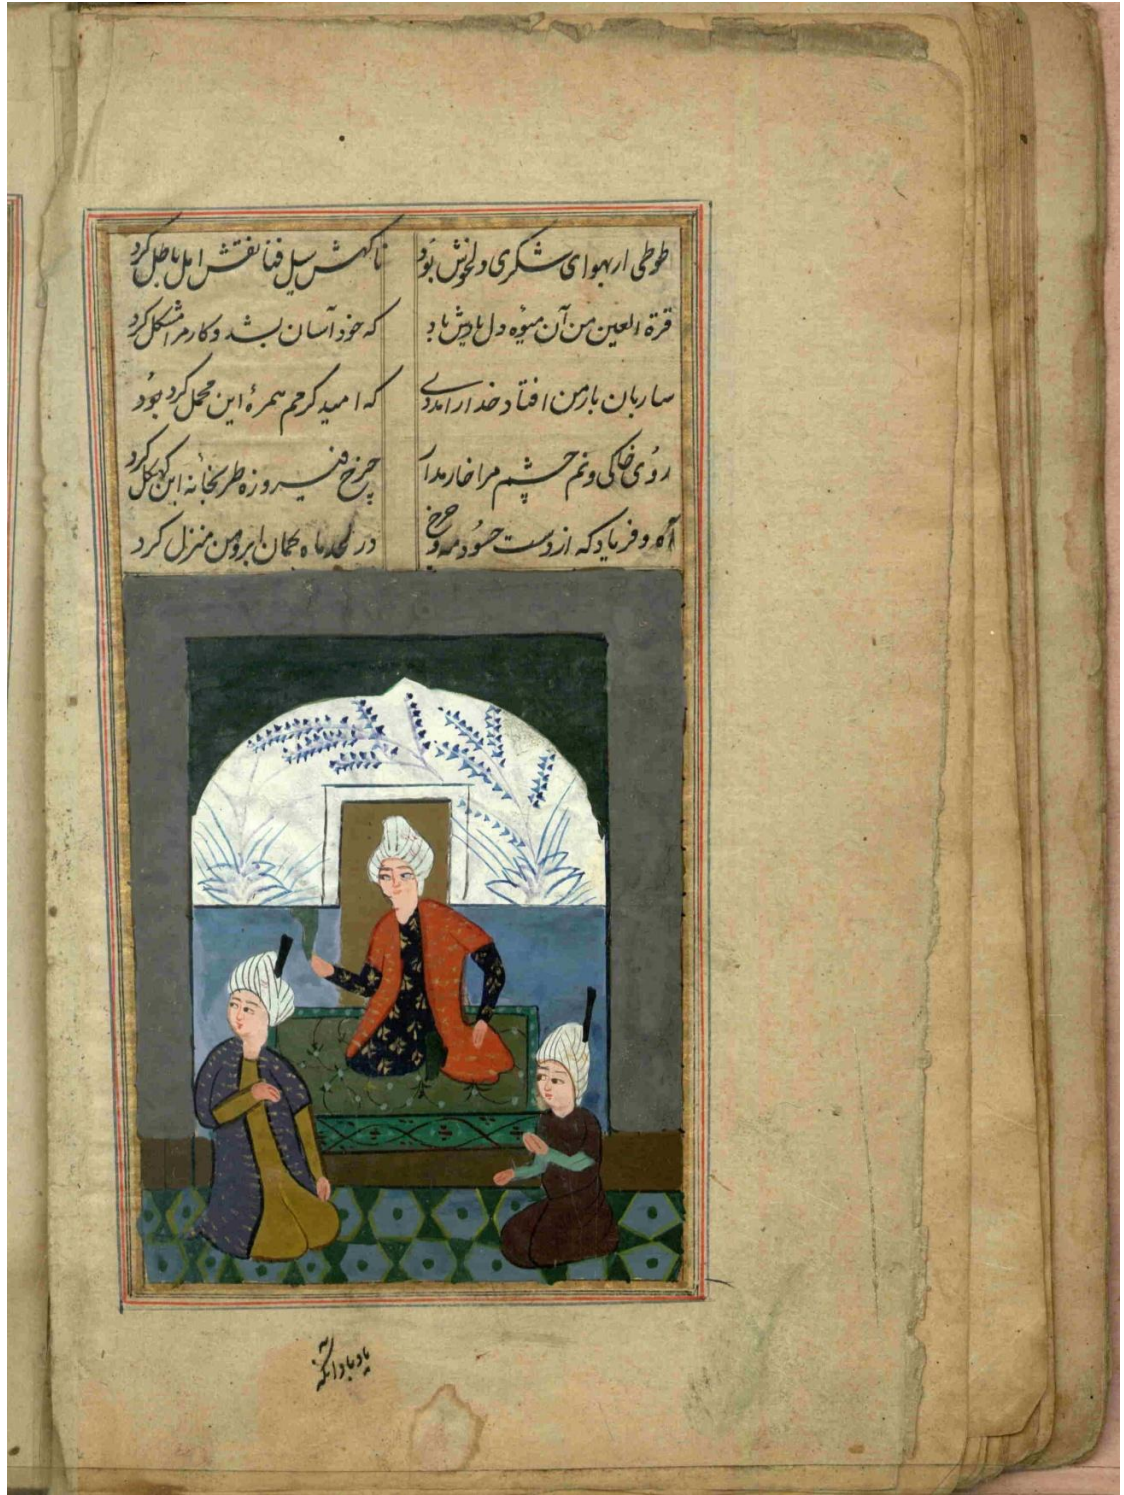 طوطی ار بهوای شکری دلخوش بود ناگهش سیل فنا نقش امل باطل کرد
قرة العین من آن میؤه دل یادش باد که خود آسان بشد و کار مرا مشکل کرد
ساربان بار من افتاد خدا را مددی که امید کرمم همرهٔ این محمل کرد بود
روی خاکی و نم چشم مرا خار مدار چرخ فیروزه طربخانه ازین کهگل کرد
آه و فریاد که از دست حسود مه و چرخ در لحد ماه کمان ابروی من منزل کرد
یاد باد آنکه